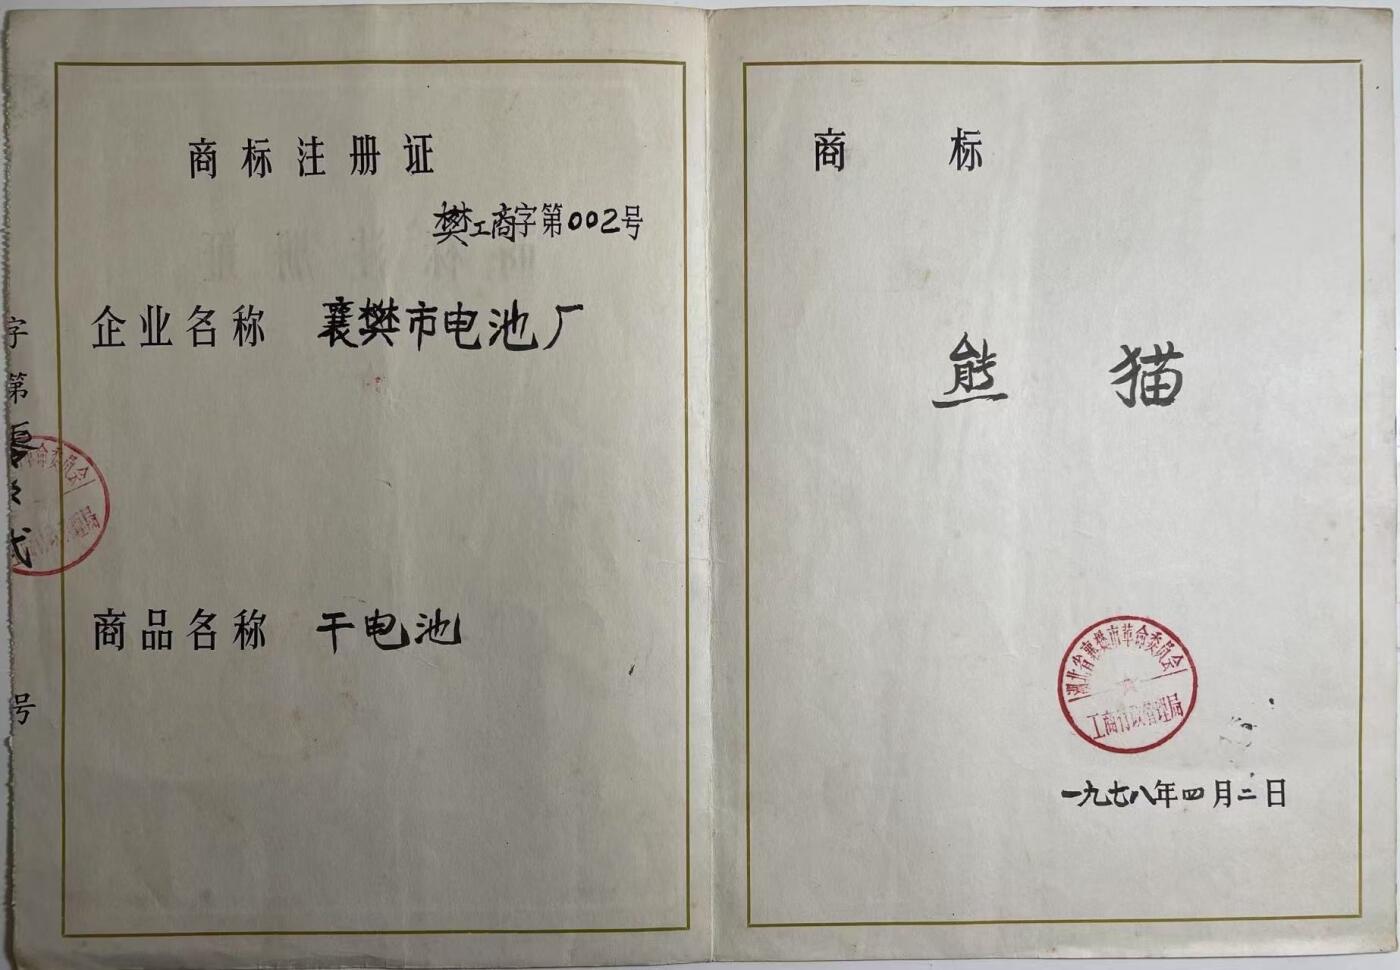 商标注册证
樊工商字第002号
企业名称 襄樊市电池厂
商品名称 干电池
字第零零弍号
革命委员会
商标
熊猫
湖北省襄樊市革命委员会
工商行政管理局
一九七八年四月二日